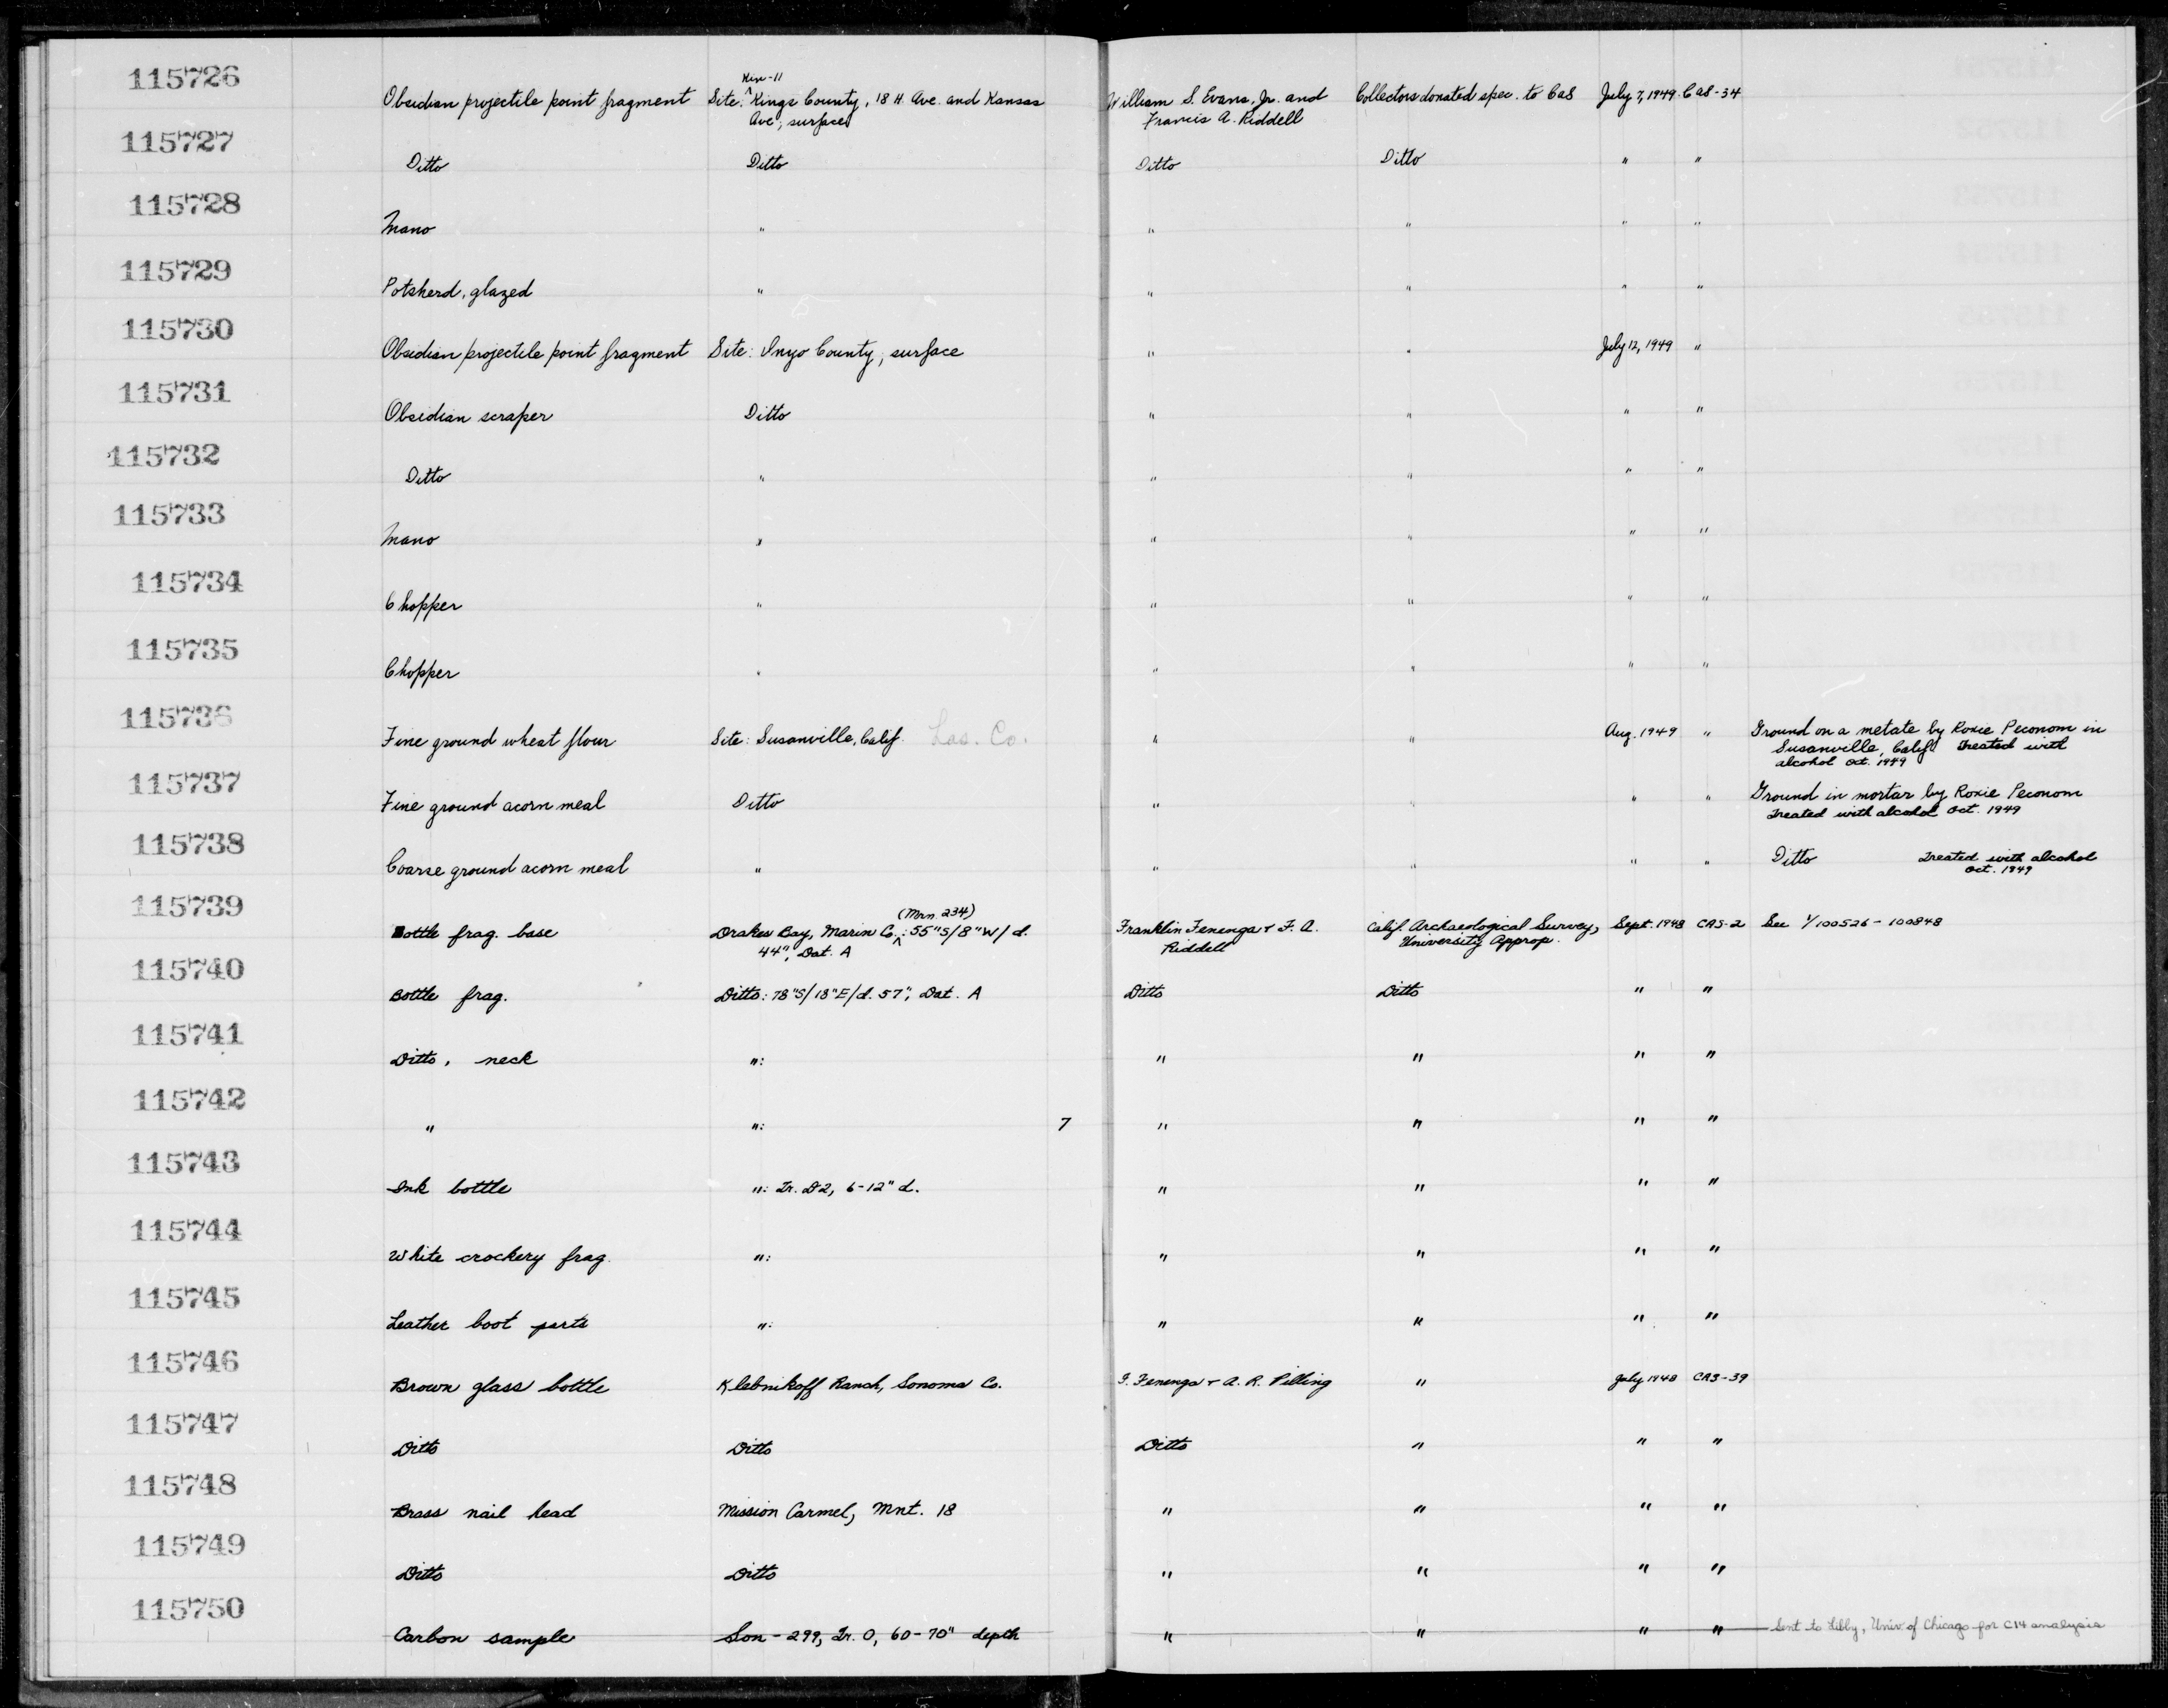 115726 Obsidian projectile point fragment Site: Kin-11 Kings County, 18 H. Ave. and Kansas Ave; surface William S. Evans, Jr. and Francis A. Riddell Collectors donated spec. to CAS July 7, 1949 CAS-34
115727 Ditto Ditto Ditto Ditto " "
115728 Mano " " " " "
115729 Potsherd, glazed " " " " "
115730 Obsidian projectile point fragment Site: Inyo County, surface " " July 12, 1949 "
115731 Obsidian scraper Ditto " " " "
115732 Ditto " " " " "
115733 Mano " " " " "
115734 Chopper " " " " "
115735 Chopper " " " " "
115736 Fine ground wheat flour Site: Susanville, Calif. Las. Co. " " Aug. 1949 " Ground on a metate by Roxie Peconom in Susanville, Calif. Treated with alcohol Oct. 1949
115737 Fine ground acorn meal Ditto " " " " Ground in mortar by Roxie Peconom Treated with alcohol Oct. 1949
115738 Coarse ground acorn meal " " " " " Ditto Treated with alcohol Oct. 1949
115739 Bottle frag. base Drakes Bay, Marin Co. (Mrn. 234): 55"S/8"W/d. 44", Dat. A Franklin Fenenga + F. A. Riddell Calif. Archaeological Survey, University Approp. Sept. 1948 CAS-2 See 1/100526-100848
115740 Bottle frag. Ditto: 78"S/18"E/d. 57", Dat. A Ditto Ditto " "
115741 Ditto, neck ": " " " "
115742 " ": 7 " " " "
115743 Ink bottle ": Tr. D2, 6-12" d. " " " "
115744 White crockery frag. ": " " " "
115745 Leather boot parts ": " " " "
115746 Brown glass bottle Klebnikoff Ranch, Sonoma Co. F. Fenenga + A. R. Pilling " July 1948 CAS-39
115747 Ditto Ditto Ditto " " "
115748 Brass nail head Mission Carmel, Mnt. 18 " " " "
115749 Ditto Ditto " " " "
115750 Carbon sample Son-299, Tr. O, 60-70" depth " " " " Sent to Libby, Univ. of Chicago for C14 analysis